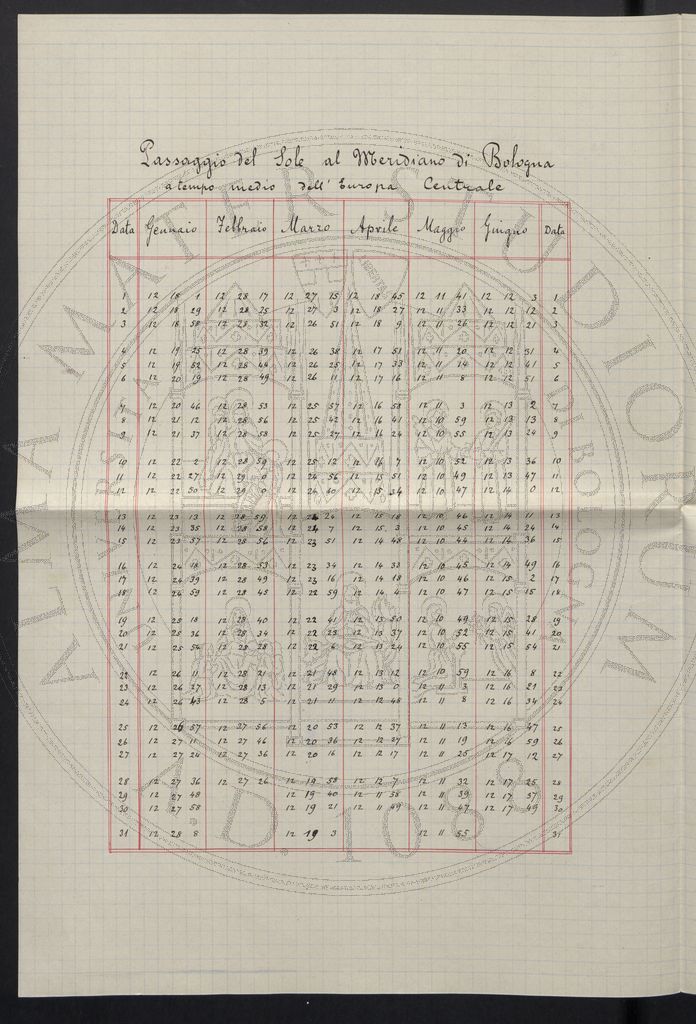 Passaggio del Sole al Meridiano di Bologna
a tempo medio dell' Europa Centrale
Data Gennaio Febbraio Marzo Aprile Maggio Giugno Data
1 12 18 1 12 28 17 12 27 15 12 18 45 12 11 41 12 12 3 1
2 12 18 29 12 28 25 12 27 3 12 18 27 12 11 33 12 12 12 2
3 12 18 58 12 28 32 12 26 51 12 18 9 12 11 26 12 12 21 3
4 12 19 25 12 28 39 12 26 38 12 17 51 12 11 20 12 12 31 4
5 12 19 52 12 28 44 12 26 25 12 17 33 12 11 14 12 12 41 5
6 12 20 19 12 28 49 12 26 11 12 17 16 12 11 8 12 12 51 6
7 12 20 46 12 28 53 12 25 57 12 16 58 12 11 3 12 13 2 7
8 12 21 12 12 28 56 12 25 42 12 16 41 12 10 59 12 13 13 8
9 12 21 37 12 28 58 12 25 27 12 16 24 12 10 55 12 13 24 9
10 12 22 2 12 28 59 12 25 12 12 16 7 12 10 52 12 13 36 10
11 12 22 27 12 29 0 12 24 56 12 15 51 12 10 49 12 13 47 11
12 12 22 50 12 29 0 12 24 40 12 15 34 12 10 47 12 14 0 12
13 12 23 13 12 28 59 12 24 24 12 15 18 12 10 46 12 14 11 13
14 12 23 35 12 28 58 12 24 7 12 15 3 12 10 45 12 14 24 14
15 12 23 57 12 28 56 12 23 51 12 14 48 12 10 44 12 14 36 15
16 12 24 18 12 28 53 12 23 34 12 14 33 12 10 45 12 14 49 16
17 12 24 39 12 28 49 12 23 16 12 14 18 12 10 46 12 15 2 17
18 12 24 59 12 28 45 12 22 59 12 14 4 12 10 47 12 15 15 18
19 12 25 18 12 28 40 12 22 41 12 13 50 12 10 49 12 15 28 19
20 12 25 36 12 28 34 12 22 23 12 13 37 12 10 52 12 15 41 20
21 12 25 54 12 28 28 12 22 6 12 13 24 12 10 55 12 15 54 21
22 12 26 11 12 28 21 12 21 48 12 13 12 12 10 59 12 16 8 22
23 12 26 27 12 28 13 12 21 29 12 13 0 12 11 3 12 16 21 23
24 12 26 43 12 28 5 12 21 11 12 12 48 12 11 8 12 16 34 24
25 12 26 57 12 27 56 12 20 53 12 12 37 12 11 13 12 16 47 25
26 12 27 11 12 27 46 12 20 36 12 12 27 12 11 19 12 16 59 26
27 12 27 24 12 27 36 12 20 16 12 12 17 12 11 25 12 17 12 27
28 12 27 36 12 27 26 12 19 58 12 12 7 12 11 32 12 17 25 28
29 12 27 48 12 19 40 12 11 58 12 11 39 12 17 37 29
30 12 27 58 12 19 21 12 11 49 12 11 47 12 17 49 30
31 12 28 8 12 19 3 12 11 55 31
ALMA MATER STUDIORUM
A.D. 1088